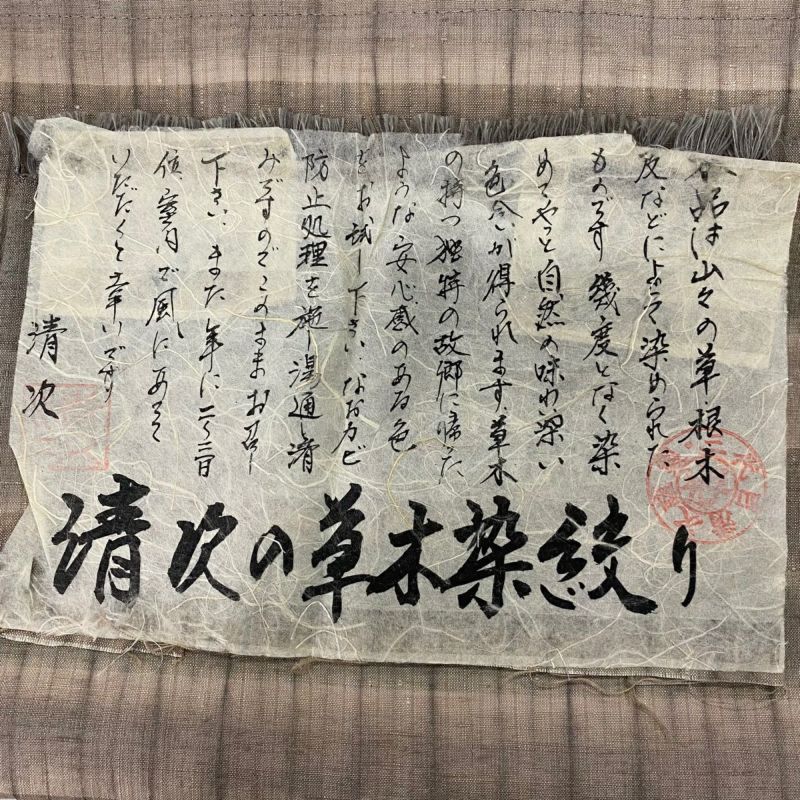 本品は山々の草根木
皮などによって染められた
ものです 幾度となく染
めてやっと自然の味わい深い
色合いが得られます。草木
の持つ独特の故郷に帰った
ような安心感のある色
をお試し下さい。なおカビ
防止処理を施し湯通し済
みですのでこのままお召し
下さい。また年に二、三日
位室内で風にあてて
いただくと幸いです
清次
清次の草木染絞り